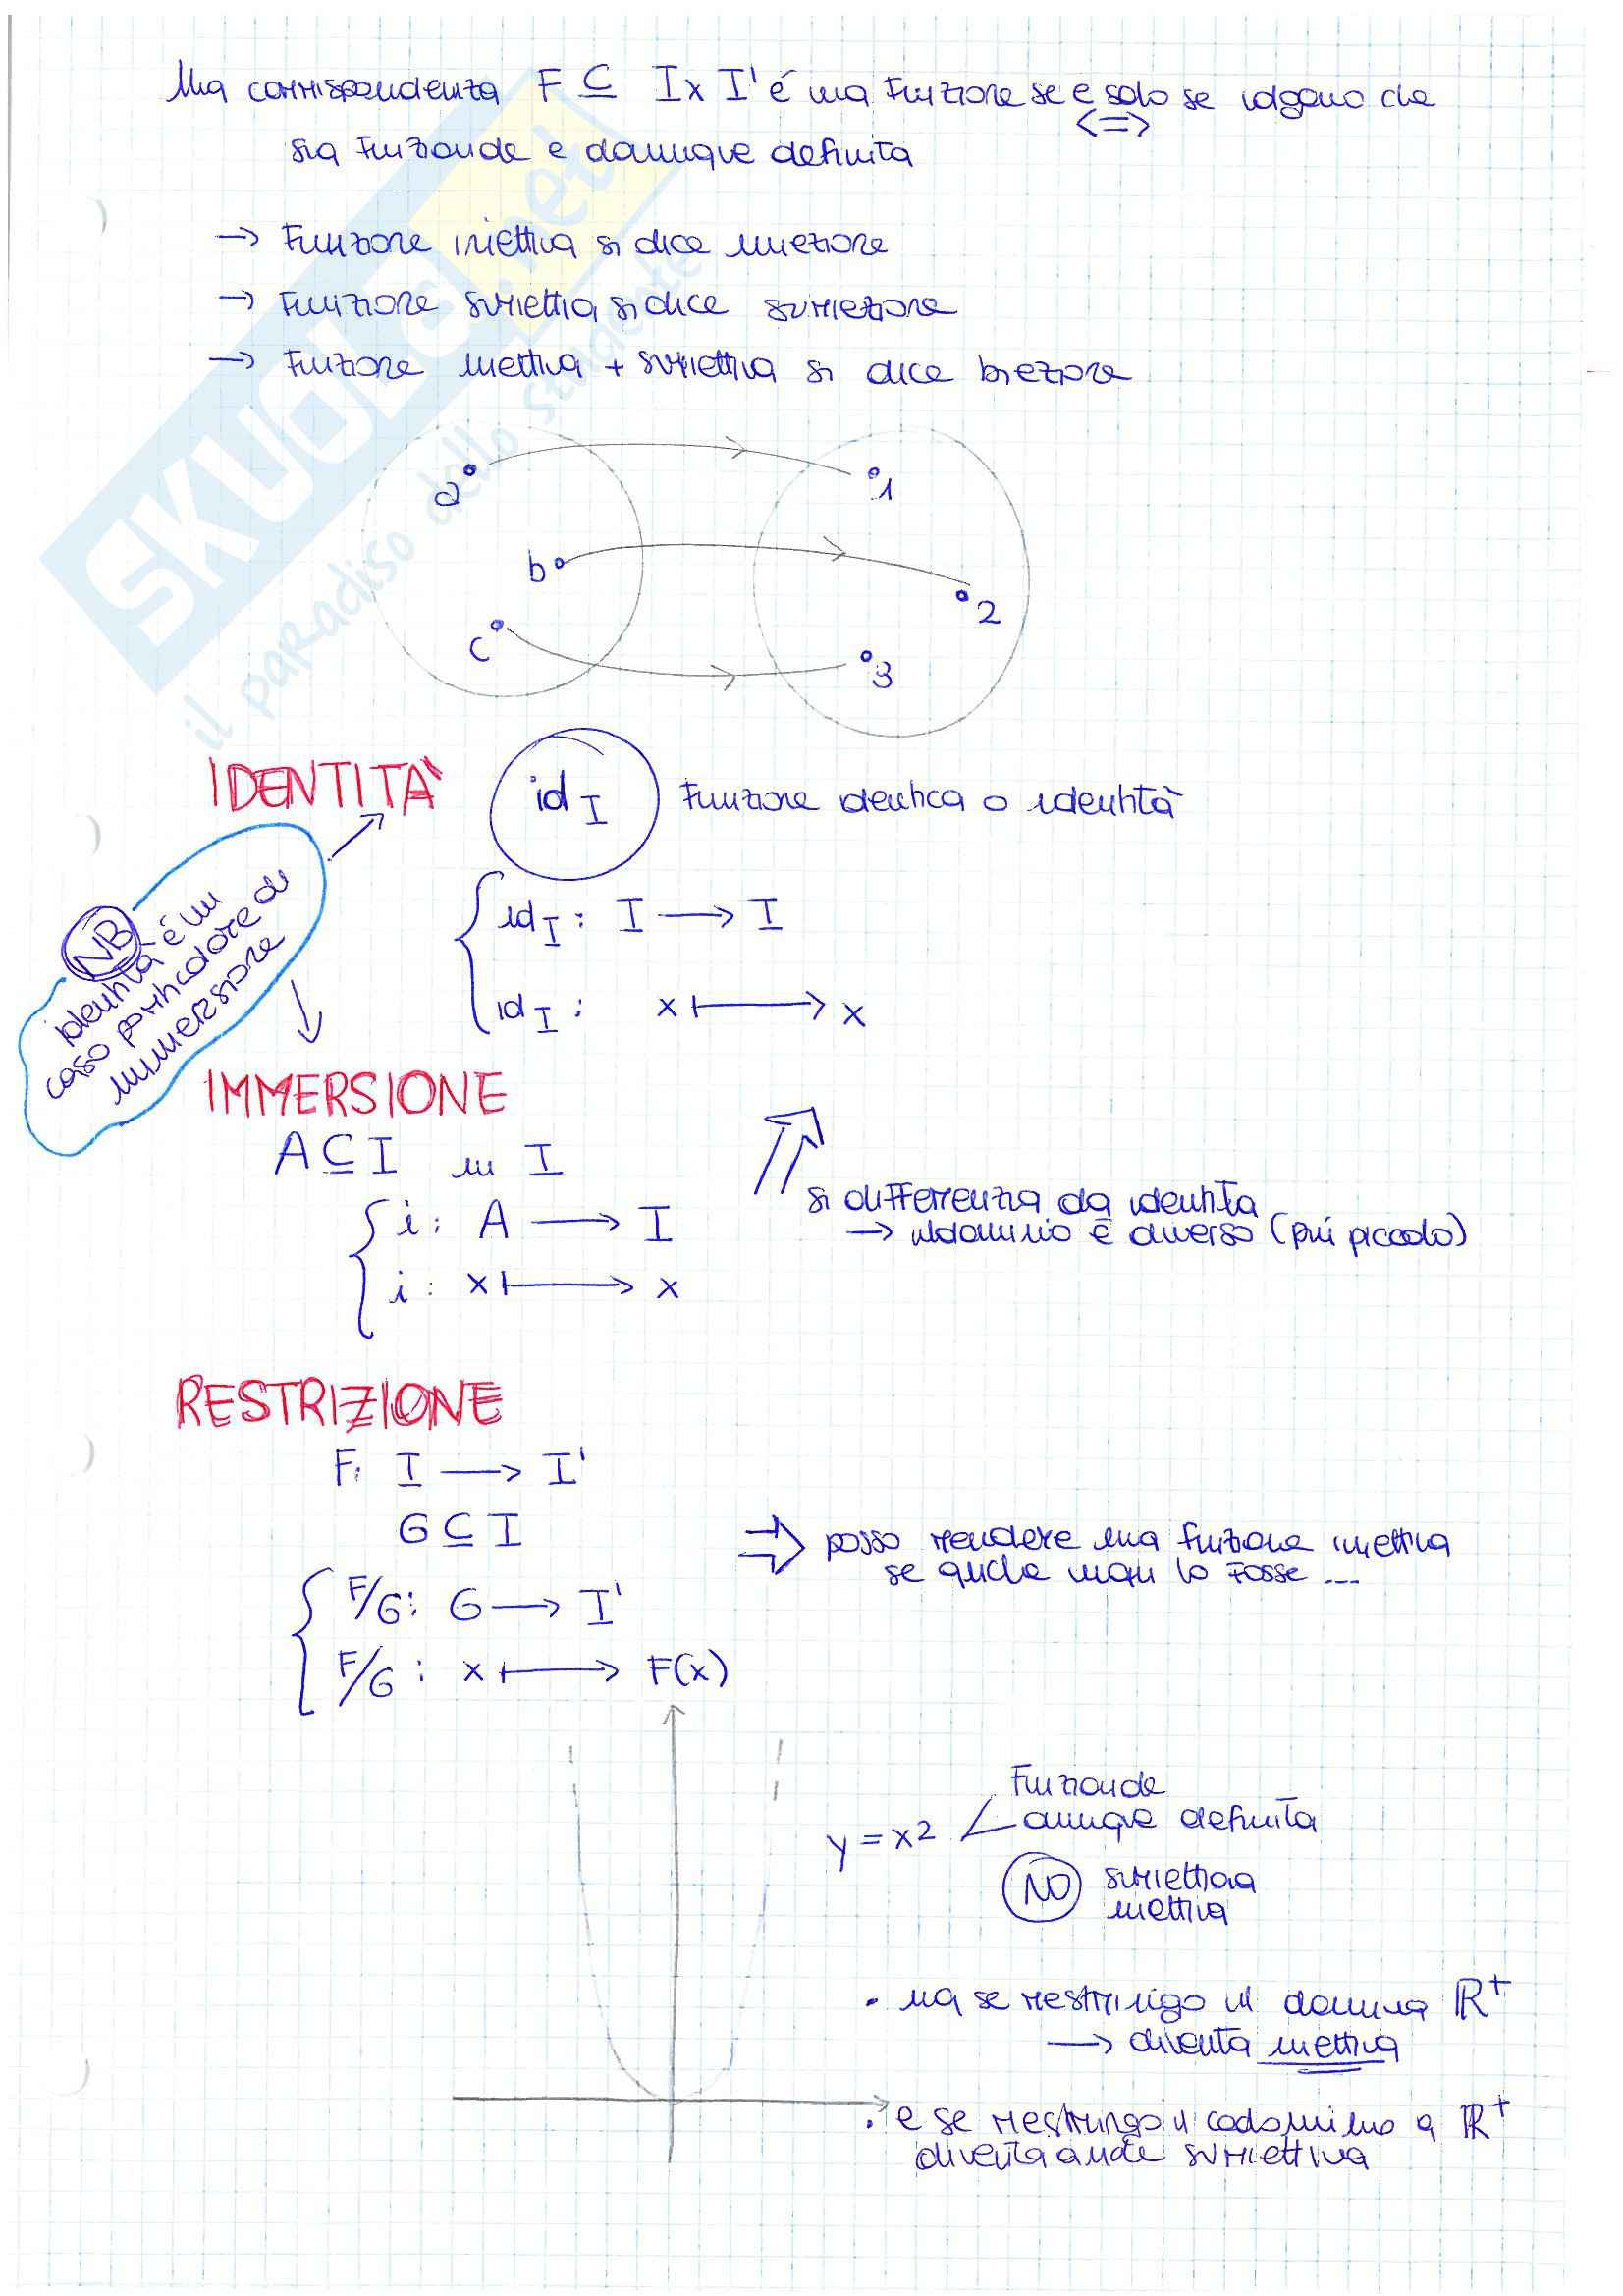 Una corrispondenza F ⊆ I x I' é una funzione se e solo se valgono che
<=>
sia funzionale e ovunque definita
→ Funzione iniettiva si dice iniezione
→ Funzione suriettiva si dice suriezione
→ Funzione iniettiva + suriettiva si dice biezione
a 1
b 2
c 3
SKUOLA.net
il paradiso dello studente
IDENTITÀ id_I Funzione identica o identità
NB
identità é un
caso particolare di
immersione
id_I : I → I
id_I : x ↦ x
IMMERSIONE
A ⊆ I in I
i : A → I
i : x ↦ x
si differenzia da identità
→ il dominio é diverso (più piccolo)
RESTRIZIONE
F: I → I'
G ⊆ I
F/G : G → I'
F/G : x ↦ F(x)
⇒ posso rendere una funzione iniettiva
se anche non lo fosse ...
y = x2
Funzionale
ovunque definita
NO suriettiva
iniettiva
• ma se restringo il dominio R+
→ diventa iniettiva
• e se restringo il codominio a R+
diventa anche suriettiva